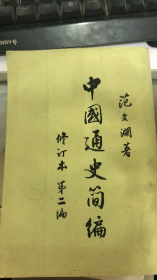 范文澜著
中國通史簡編
修订本 第二编